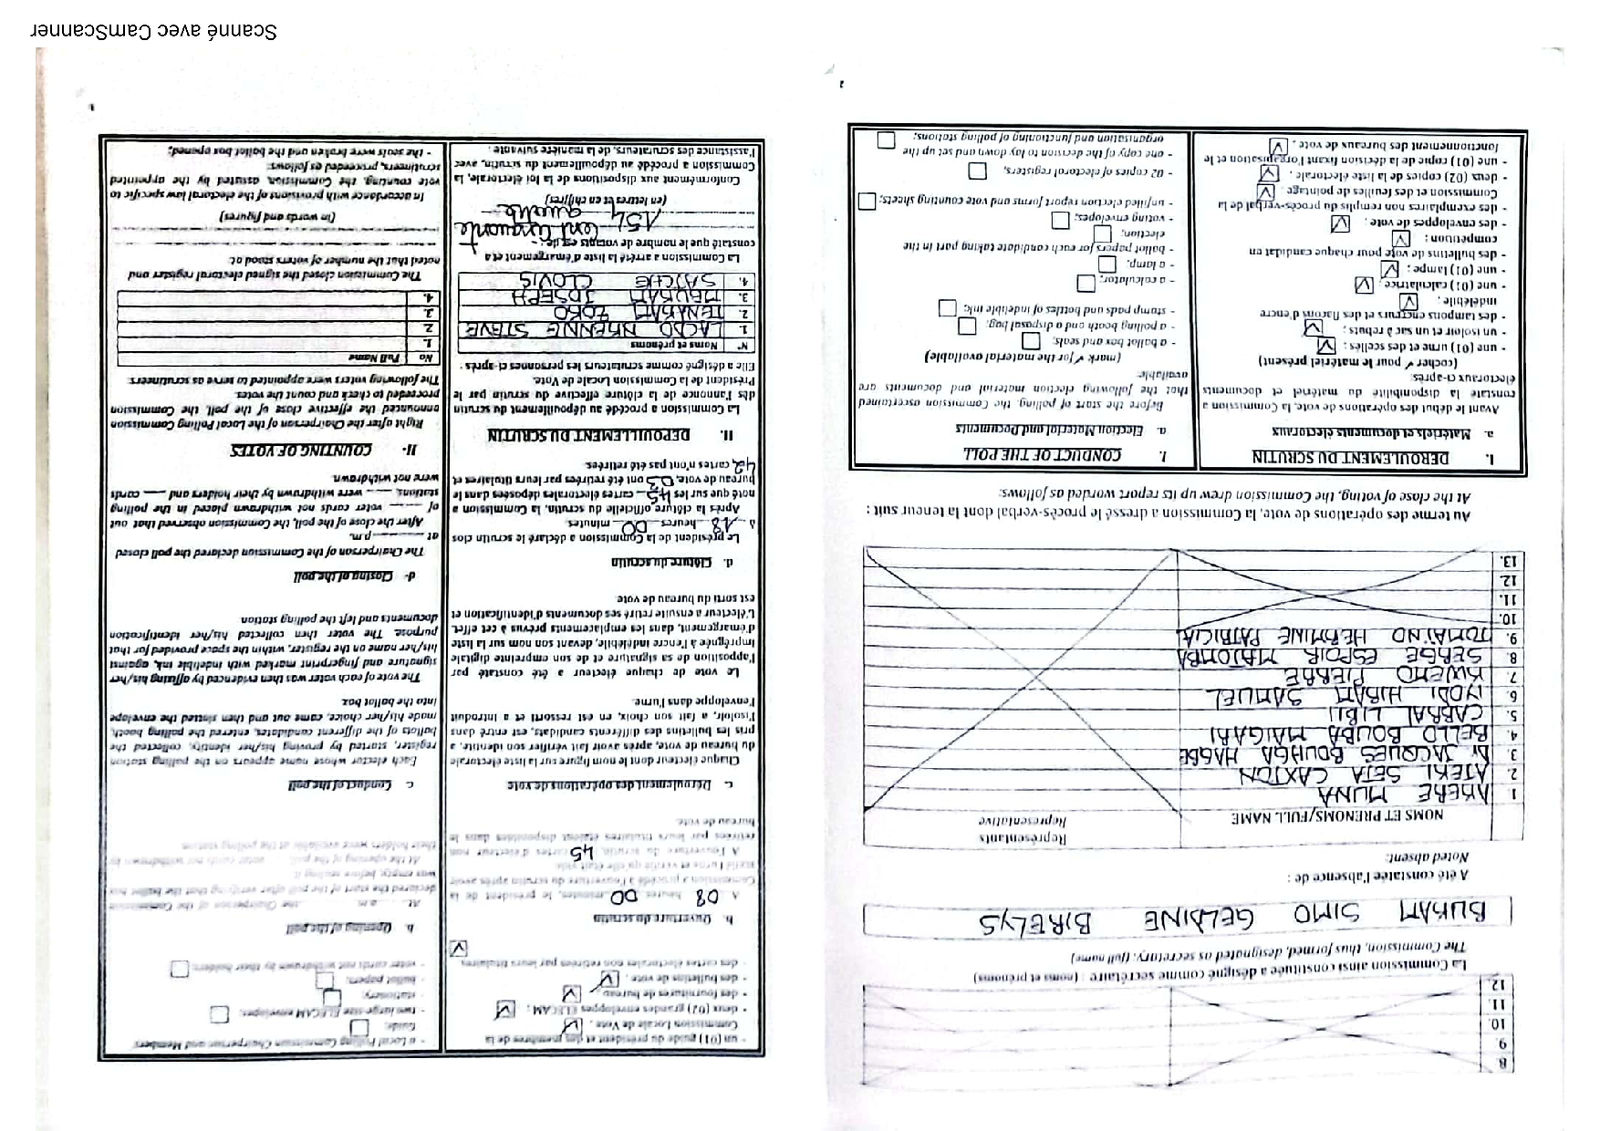 8
9
10
11.
12.
La Commission ainsi constituée a désigné comme secrétaire : (noms et prénoms)
The Commission, thus formed, designated as secretary, (full name)
BUKAM SIMO GELAINE BIRELYS
A été constatée l'absence de :
Noted absent:
NOMS ET PRENOMS/FULL NAME
Représentants
Representative
1 AKERE MUNA
2. ATEKI SETA CAXTON
3 Dr JACQUES BOUHGA HAGBE
4. BELLO BOUBA MAIGARI
5. CABRAL LIBII
6 IYODI HIRAM SAMUEL
7 KWEMO PIERRE
8 SERGE ESPOIR MATOMBA
9. TOMAÏNO HERMINE PATRICIA
10.
11.
12
13.
Au terme des opérations de vote, la Commission a dressé le procès-verbal dont la teneur suit :
At the close of voting, the Commission drew up its report worded as follows:
I. DEROULEMENT DU SCRUTIN
a. Matériels et documents électoraux
Avant le début des opérations de vote, la Commission a
constaté la disponibilité du matériel et documents
électoraux ci-après:
(cocher ✓ pour le matériel présent)
- une (01) urne et des scellés ;
- un isoloir et un sac à rebuts ;
- des tampons encreurs et des flacons d'encre
indélébile ;
- une (01) calculatrice ;
- une (01) lampe ;
- des bulletins de vote pour chaque candidat en
compétition ;
- des enveloppes de vote ;
- des exemplaires non remplis du procès-verbal de la
Commission et des feuilles de pointage ;
- deux (02) copies de la liste électorale ;
- une (01) copie de la décision fixant l'organisation et le
fonctionnement des bureaux de vote ;
I. CONDUCT OF THE POLL
a. Election Material and Documents
Before the start of polling, the Commission ascertained
that the following election material and documents are
available:
(mark ✓ for the material available)
- a ballot box and seals;
- a polling booth and a disposal bag;
- stamp pads and bottles of indelible ink;
- a calculator;
- a lamp;
- ballot papers for each candidate taking part in the
election;
- voting envelopes;
- unfilled election report forms and vote counting sheets;
- 02 copies of electoral registers;
- one copy of the decision to lay down and set up the
organisation and functioning of polling stations;
2
- un (01) guide du président et des membres de la
Commission Locale de Vote ;
- deux (02) grandes enveloppes ELECAM ;
- des fournitures de bureau ;
- des bulletins de vote ;
- des cartes électorales non retirées par leurs titulaires
b. Ouverture du scrutin
A 08 heures 00 minutes, le président de la
Commission a procédé à l'ouverture du scrutin après avoir
scellé l'urne et vérifié qu'elle était vide.
A l'ouverture du scrutin, 45 cartes d'électeur non
retirées par leurs titulaires étaient disponibles dans le
bureau de vote.
c. Déroulement des opérations de vote
Chaque électeur dont le nom figure sur la liste électorale
du bureau de vote, après avoir fait vérifier son identité, a
pris les bulletins des différents candidats, est entré dans
l'isoloir, a fait son choix, en est ressorti et a introduit
l'enveloppe dans l'urne.
Le vote de chaque électeur a été constaté par
l'apposition de sa signature et de son empreinte digitale
imprégnée à l'encre indélébile, devant son nom sur la liste
d'émargement, dans les emplacements prévus à cet effet.
L'électeur a ensuite retiré ses documents d'identification et
est sorti du bureau de vote
d. Clôture du scrutin
Le président de la Commission a déclaré le scrutin clos
à 18 heures 00 minutes
Après la clôture officielle du scrutin, la Commission a
noté que sur les 45 cartes électorales déposées dans le
bureau de vote, 03 ont été retirées par leurs titulaires et
42 cartes n'ont pas été retirées.
II. DEPOUILLEMENT DU SCRUTIN
La Commission a procédé au dépouillement du scrutin
dès l'annonce de la clôture effective du scrutin par le
Président de la Commission Locale de Vote.
Elle a désigné comme scrutateurs les personnes ci-après :
N° Noms et prénoms
1. LACBO NHENNE STEVE
2. TENABAM ZOKO
3. MEUBAM JOSEPH
4. SAICHE CLOVIS
La Commission a arrêté la liste d'émargement et a
constaté que le nombre de votants est de :
154 Cent cinquante
quatre
(en lettres et en chiffres)
Conformément aux dispositions de la loi électorale, la
Commission a procédé au dépouillement du scrutin, avec
l'assistance des scrutateurs, de la manière suivante :
- a Local Polling Commission Chairperson and Members
Guide;
- two large-size ELECAM envelopes;
- stationery;
- ballot papers;
- voter cards not withdrawn by their holders;
b. Opening of the poll
At a.m the Chairperson of the Commission
declared the start of the poll after verifying that the ballot box
was empty, before sealing it
At the opening of the poll voter cards not withdrawn by
their holders were available at the polling station
c. Conduct of the poll
Each elector whose name appears on the polling station
register, started by proving his/her identity, collected the
ballots of the different candidates, entered the polling booth,
made his/her choice, came out and then slotted the envelope
into the ballot box
The vote of each voter was then evidenced by affixing his/her
signature and fingerprint marked with indelible ink, against
his/her name on the register, within the space provided for that
purpose. The voter then collected his/her identification
documents and left the polling station
d- Closing of the poll
The Chairperson of the Commission declared the poll closed
at p.m.
After the close of the poll, the Commission observed that out
of voter cards not withdrawn placed in the polling
stations, were withdrawn by their holders and cards
were not withdrawn.
II- COUNTING OF VOTES
Right after the Chairperson of the Local Polling Commission
announced the effective close of the poll, the Commission
proceeded to check and count the votes.
The following voters were appointed to serve as scrutineers:
No Full Name
1.
2.
3.
4.
The Commission closed the signed electoral register and
noted that the number of voters stood at:
(in words and figures)
In accordance with provisions of the electoral law specific to
vote counting, the Commission, assisted by the appointed
scrutineers, proceeded as follows:
- the seals were broken and the ballot box opened;
Scanné avec CamScanner